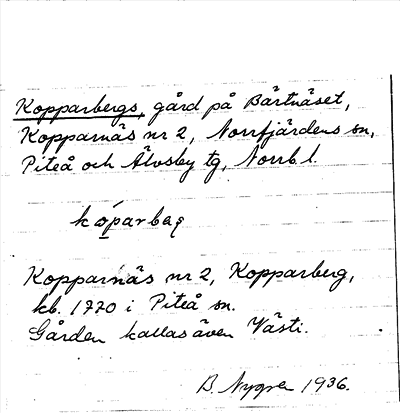 Kopparbergs, gård på Bärtnäset,
Kopparnäs nr 2, Norrfjärdens sn,
Piteå och Älvsby tg, Norrb. l.
Kopparnäs nr 2, Kopparberg,
kb. 1770 i Piteå sn.
Gården kallas även Västi.
B. Nygren 1936.